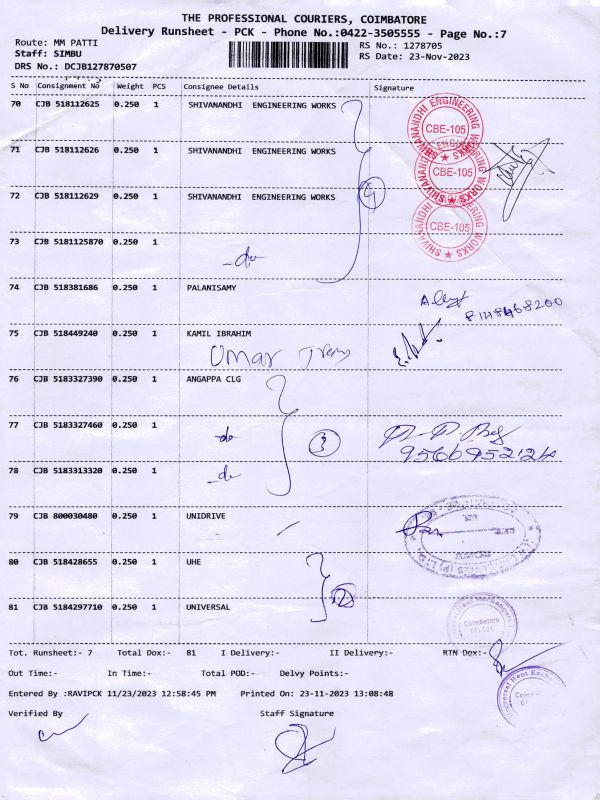 THE PROFESSIONAL COURIERS, COIMBATORE
Delivery Runsheet - PCK - Phone No.:0422-3505555 - Page No.:7
Route: MM PATTI
RS No.: 1278705
Staff: SIMBU
RS Date: 23-Nov-2023
DRS No.: DCJB127870507
S No Consignment No Weight PCS Consignee Details Signature
70 CJB 518112625 0.250 1 SHIVANANDHI ENGINEERING WORKS
SHIVANANDHI ENGINEERING WORKS
CBE-105
71 CJB 518112626 0.250 1 SHIVANANDHI ENGINEERING WORKS
CBE-105
72 CJB 518112629 0.250 1 SHIVANANDHI ENGINEERING WORKS
4
SHIVANANDHI ENGINEERING WORKS
CBE-105
73 CJB 5181125870 0.250 1
-do-
74 CJB 518381686 0.250 1 PALANISAMY
8148468200
75 CJB 518449240 0.250 1 KAMIL IBRAHIM
Omar
76 CJB 5183327390 0.250 1 ANGAPPA CLG
77 CJB 5183327460 0.250 1 -do-
3
9566952124
78 CJB 5183313320 0.250 1 -do-
79 CJB 800030480 0.250 1 UNIDRIVE
80 CJB 518428655 0.250 1 UHE
2
81 CJB 5184297710 0.250 1 UNIVERSAL
Coimbatore
Tot. Runsheet:- 7 Total Dox:- 81 I Delivery:- II Delivery:- RTN Dox:-
Out Time:- In Time:- Total POD:- Delvy Points:-
Universal Heat
Entered By :RAVIPCK 11/23/2023 12:58:45 PM Printed On: 23-11-2023 13:08:48
Verified By Staff Signature